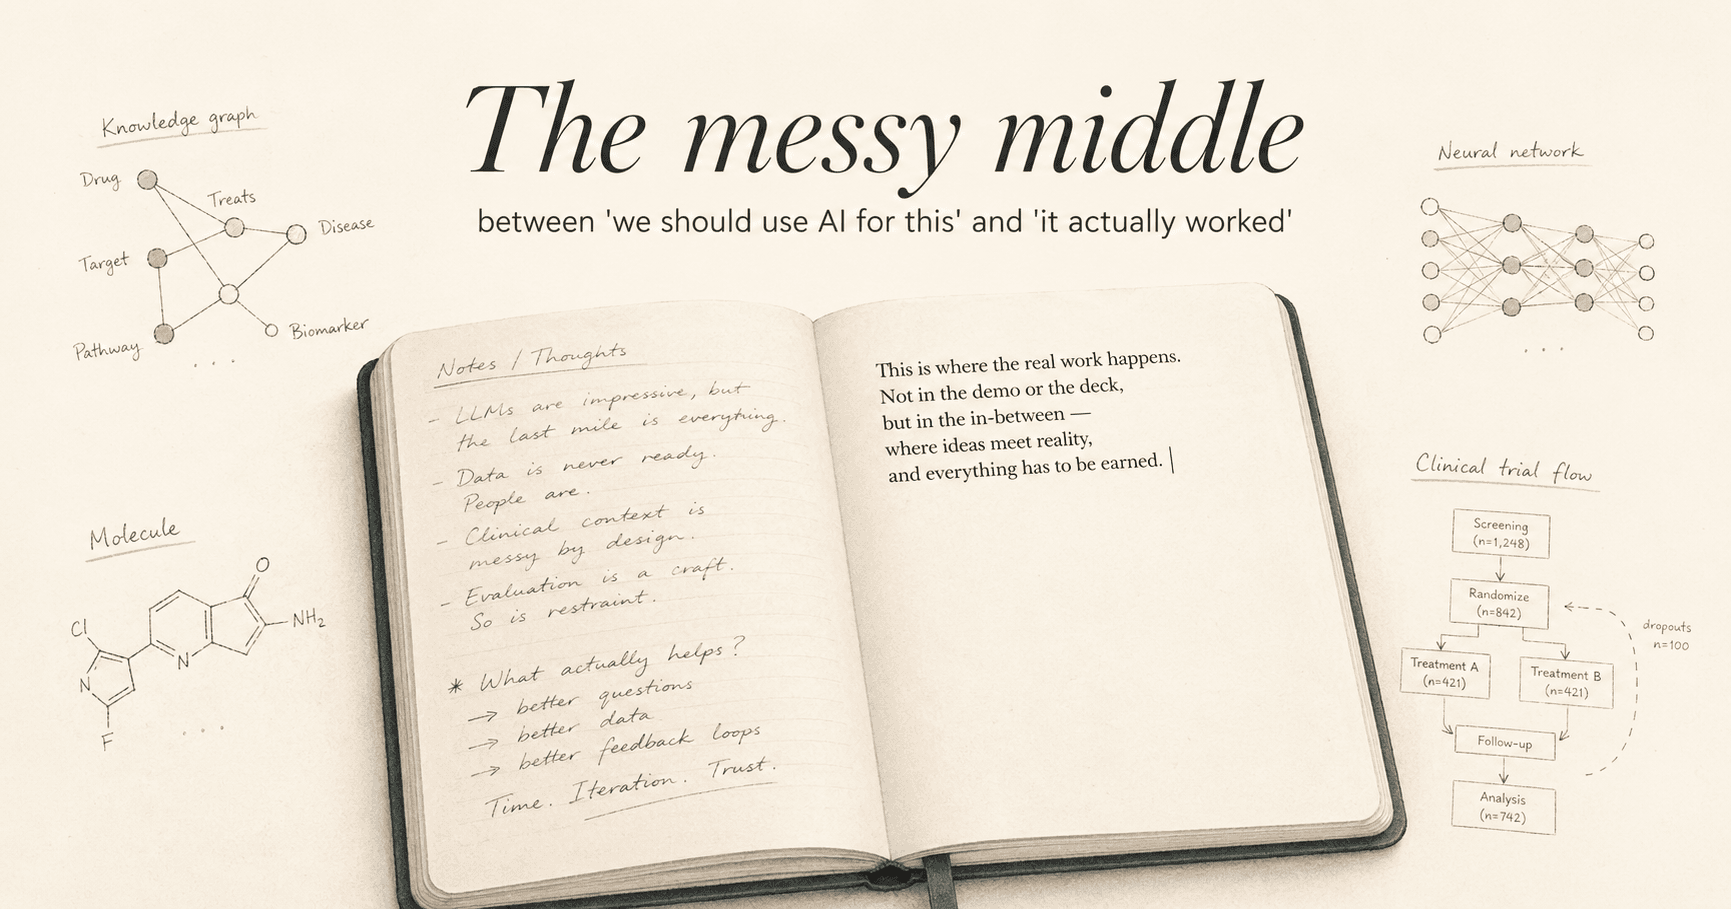 The messy middle
between 'we should use AI for this' and 'it actually worked'
Knowledge graph
Drug
Treats
Disease
Target
Biomarker
Pathway
. . .
Molecule
O
Cl
NH₂
N
N
F
. . .
Notes / Thoughts
- LLMs are impressive, but
the last mile is everything.
- Data is never ready.
People are.
- Clinical context is
messy by design.
- Evaluation is a craft.
So is restraint.
* What actually helps?
→ better questions
→ better data
→ better feedback loops
Time. Iteration. Trust.
This is where the real work happens.
Not in the demo or the deck,
but in the in-between —
where ideas meet reality,
and everything has to be earned. |
Neural network
. . .
Clinical trial flow
Screening
(n=1,248)
Randomize
(n=842)
dropouts
n=100
Treatment A
(n=421)
Treatment B
(n=421)
Follow-up
Analysis
(n=742)